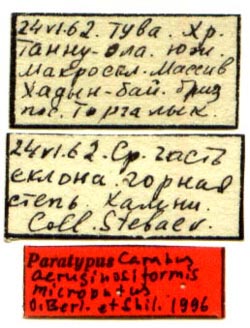 24.VI.62. Тува. Хр.
Танну-Ола. юж.
Макроскл. Массив
Хадын-бай. близ
пос. Торгалык.
24.VI.62. Ср. часть
склона. горная
степь.
Coll. Stebaev.
Paratypus Carabus
aeruginosiformis
O. Berl. et Shil. 1996